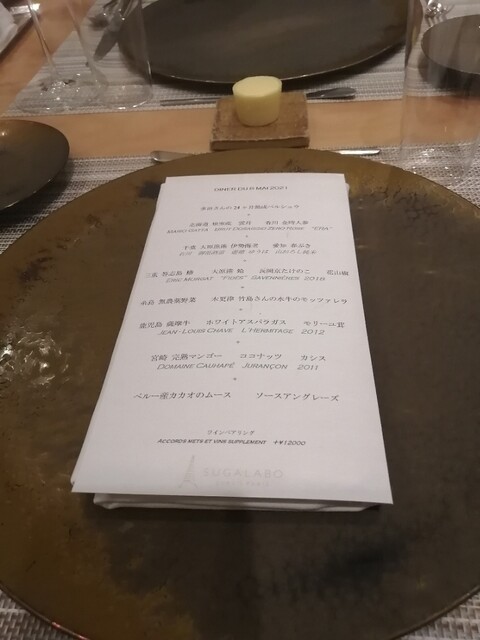 DINER DU 5 MAI 2021
多田さんの24ヶ月熟成ペルシュウ
北海道 雲丹 香川 金時人参
千葉 大原漁港 伊勢海老 愛知 蕗ふき
三重 答志島 鰆 大原港 鮑 長岡京たけのこ 花山椒
ERIC MORGAT "FIDES" SAVENNIÈRES 2016
糸島 無農薬野菜 木更津 竹島さんの水牛のモッツァレラ
鹿児島 薩摩牛 ホワイトアスパラガス モリーユ茸
JEAN-LOUIS CHAVE L'HERMITAGE 2012
宮崎 完熟マンゴー ココナッツ カシス
DOMAINE CAUHAPÉ JURANÇON 2011
ペルー産カカオのムース ソースアングレーズ
ワインペアリング
ACCORDS METS ET VINS SUPPLEMENT +¥12000
SUGALABO